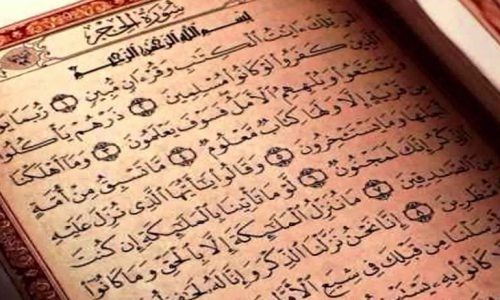 سُورَةُ الحِجْرِ
بِسْمِ اللَّهِ الرَّحْمَٰنِ الرَّحِيمِ
الٓر تِلْكَ ءَايَٰتُ ٱلْكِتَٰبِ وَقُرْءَانٍ مُّبِينٍ ١ رُّبَمَا
ٱلَّذِينَ كَفَرُوا۟ لَوْ كَانُوا۟ مُسْلِمِينَ ٢ ذَرْهُمْ يَأْكُلُوا۟
وَيَتَمَتَّعُوا۟ وَيُلْهِهِمُ ٱلْأَمَلُ فَسَوْفَ يَعْلَمُونَ ٣ وَمَآ أَهْلَكْنَا
مِن قَرْيَةٍ إِلَّا وَلَهَا كِتَابٌ مَّعْلُومٌ ٤ مَّا تَسْبِقُ مِنْ أُمَّةٍ
أَجَلَهَا وَمَا يَسْتَـْٔخِرُونَ ٥ وَقَالُوا۟ يَٰٓأَيُّهَا ٱلَّذِى نُزِّلَ عَلَيْهِ
ٱلذِّكْرُ إِنَّكَ لَمَجْنُونٌ ٦ لَّوْ مَا تَأْتِينَا بِٱلْمَلَٰٓئِكَةِ إِن كُنتَ
مِنَ ٱلصَّٰدِقِينَ ٧ مَا نُنَزِّلُ ٱلْمَلَٰٓئِكَةَ إِلَّا بِٱلْحَقِّ وَمَا كَانُوٓا۟
مُّنظَرِينَ ٨ إِنَّا نَحْنُ نَزَّلْنَا ٱلذِّكْرَ وَإِنَّا لَهُۥ لَحَٰفِظُونَ
أَرْسَلْنَا مِن قَبْلِكَ فِى شِيَعِ
كَانُوا۟ بِهِۦ